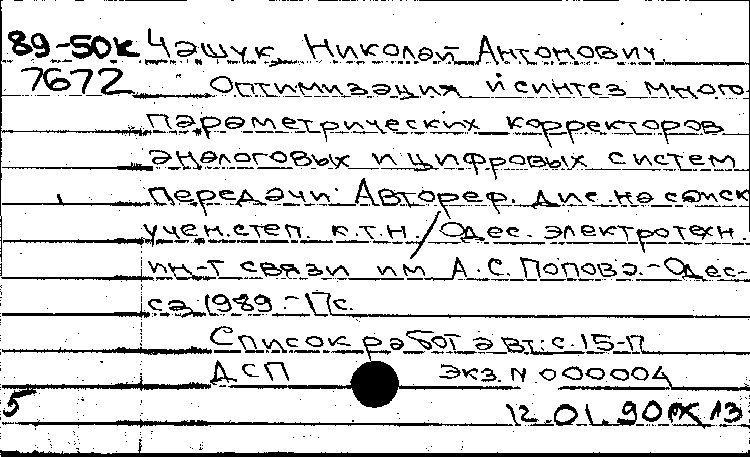 89-50к Чашук, Николай Антонович
7672 Оптимизация и синтез много
параметрических корректоров
аналоговых и цифровых систем
передачи: Автореф. дис. на соиск
учен. степ. к.т.н. / Одес. электротехн.
ин-т связи им А.С. Попова.- Одес-
са, 1989.- 17с.
Список работ авт.: с. 15-17
ДСП экз. N 000004
5 12.01.90 13